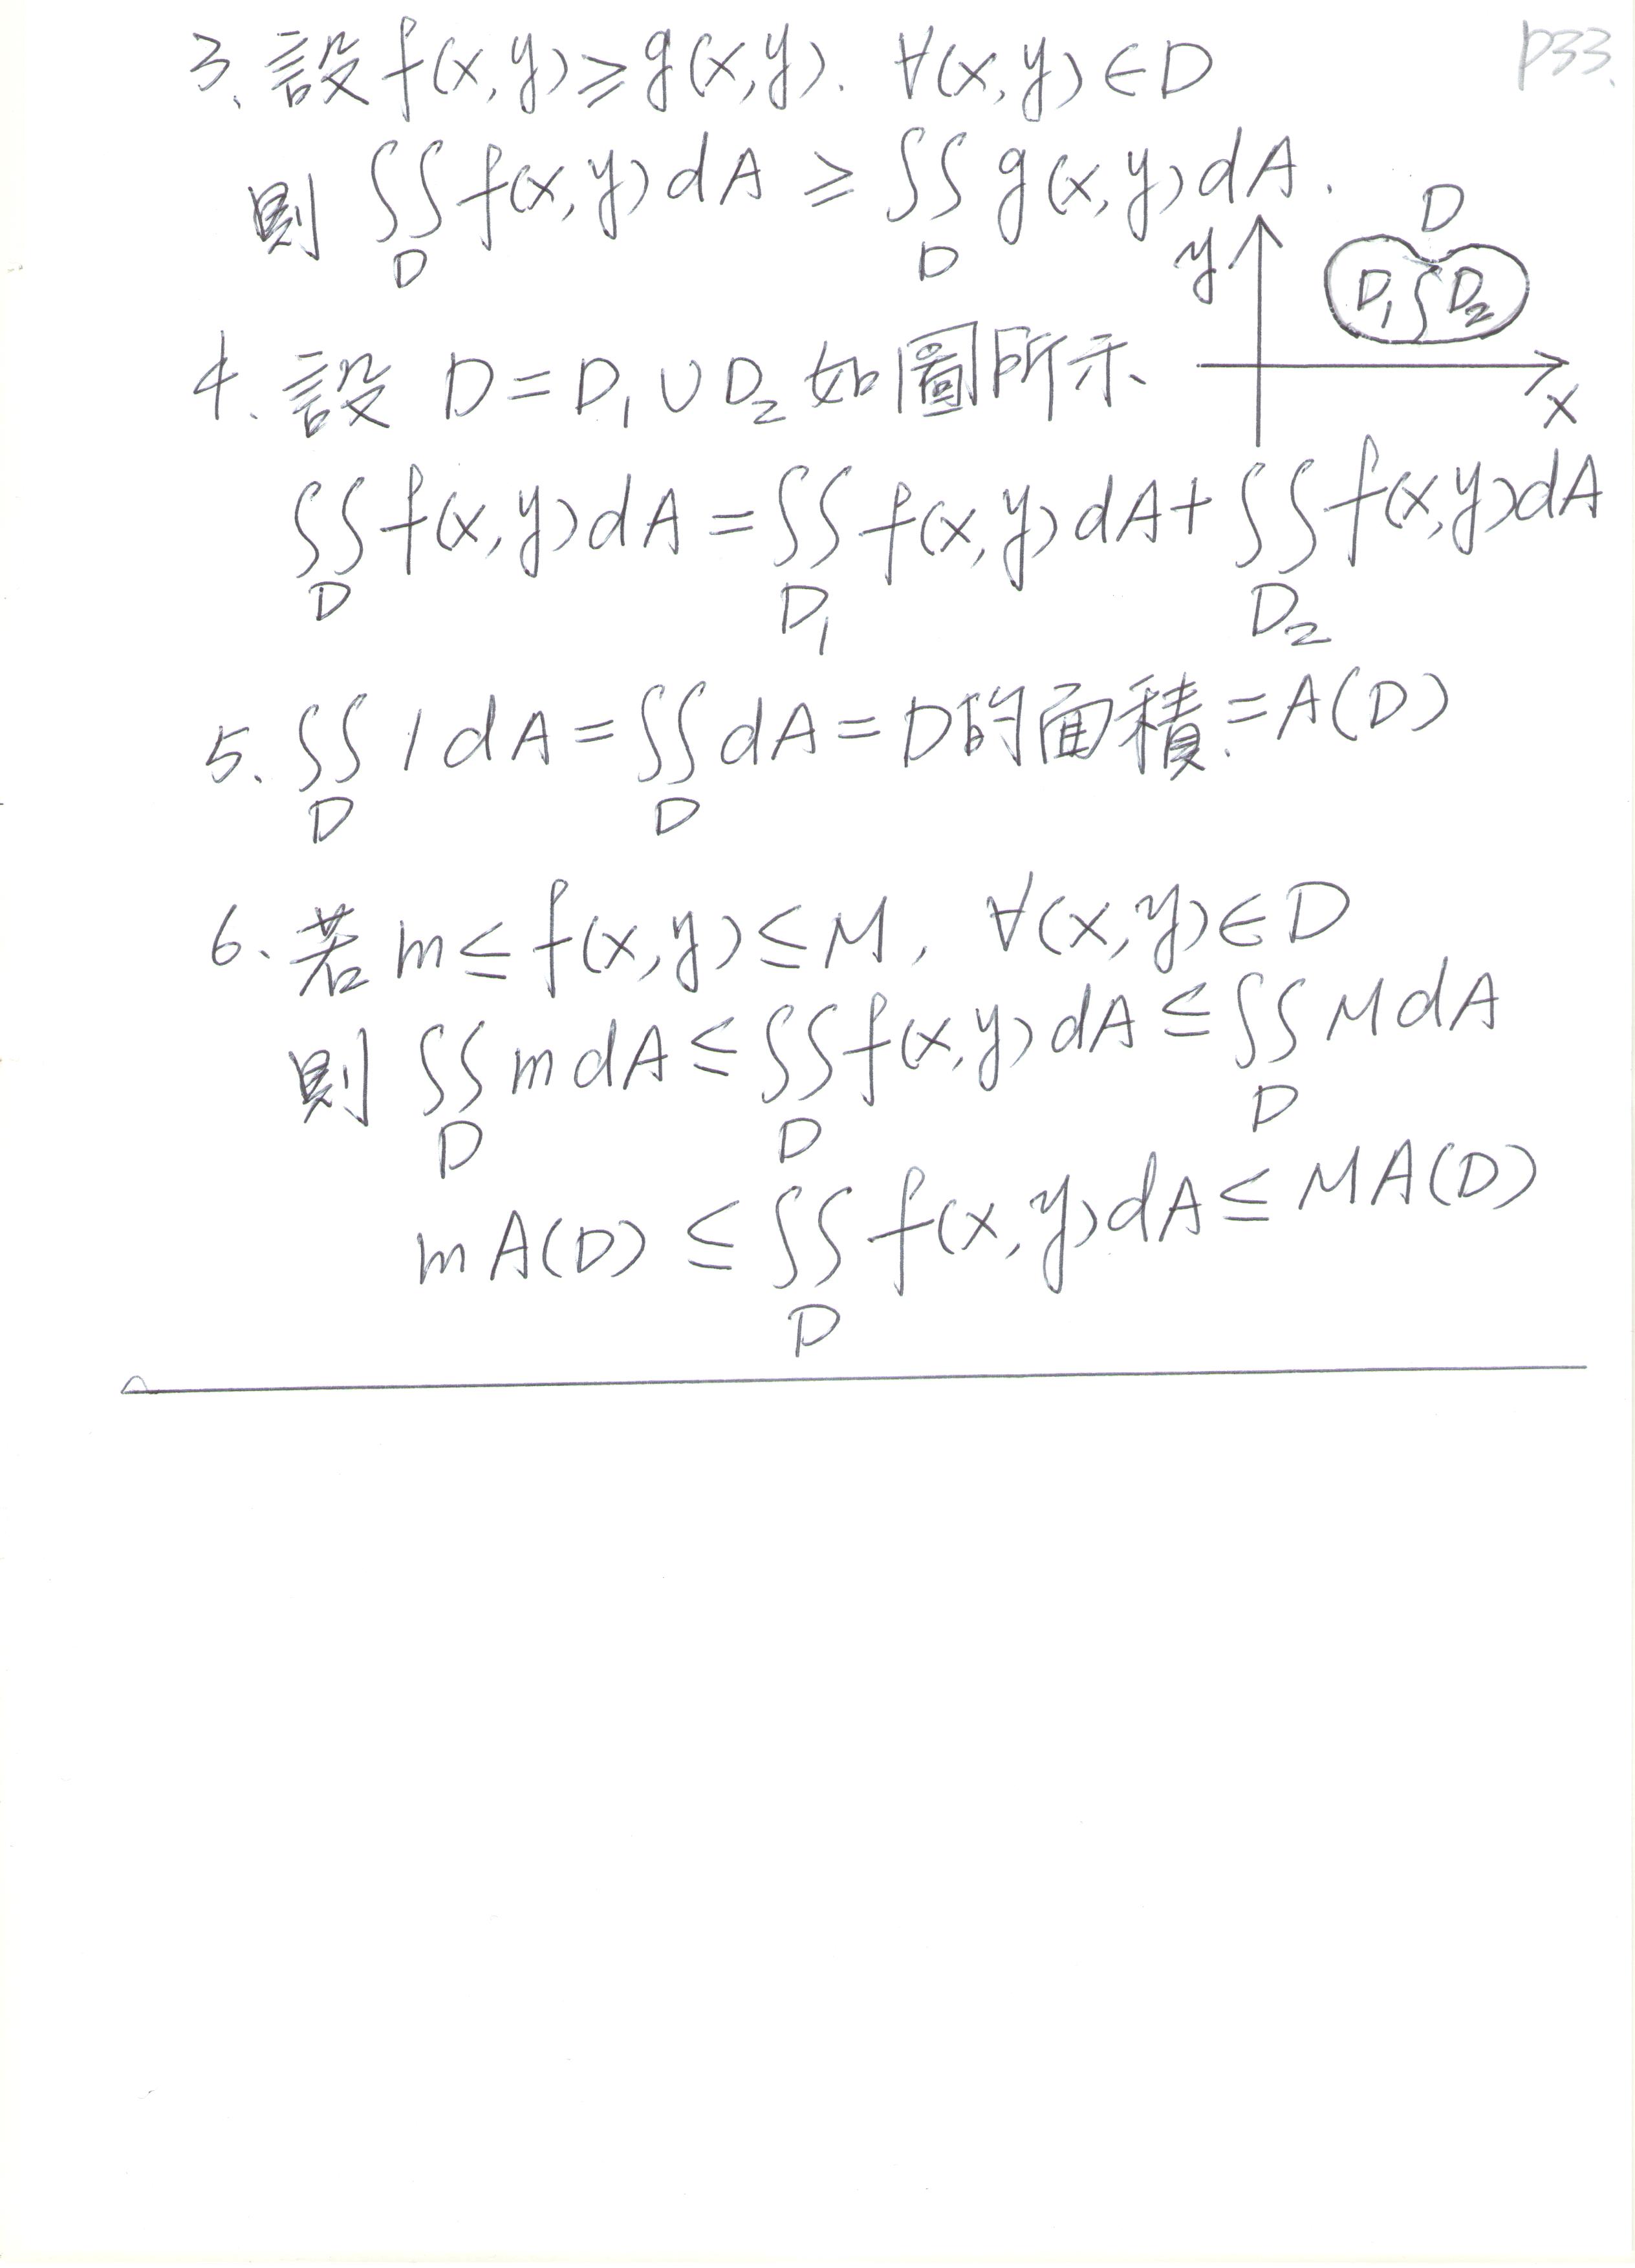 p33.
3. 設 f(x,y)≥g(x,y). ∀(x,y)∈D
則 ∬_D f(x,y)dA ≥ ∬_D g(x,y)dA.
D
y
D₁ D₂
x
4. 設 D=D₁∪D₂ 如圖所示
∬_D f(x,y)dA = ∬_{D₁} f(x,y)dA + ∬_{D₂} f(x,y)dA
5. ∬_D 1dA = ∬_D dA = D的面積 = A(D)
6. 若 m≤f(x,y)≤M, ∀(x,y)∈D
則 ∬_D mdA ≤ ∬_D f(x,y)dA ≤ ∬_D MdA
mA(D) ≤ ∬_D f(x,y)dA ≤ MA(D)